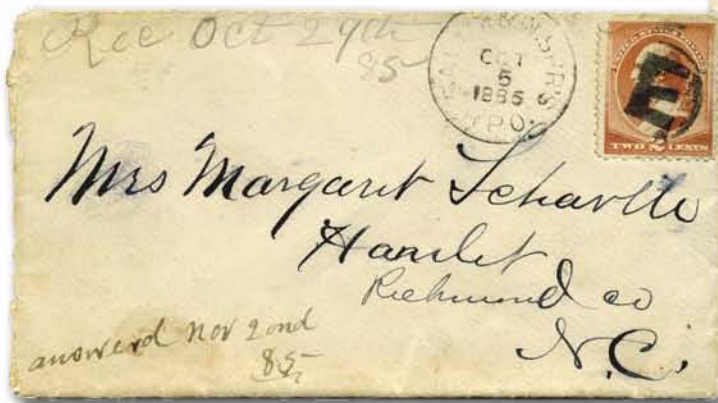 Rec Oct 29th
85
OCT
5
1885
R.P.O.
E
TWO CENTS
Mrs Margaret
Hamlet
Richmond co
N.C.
answerd Nov 2ond
85